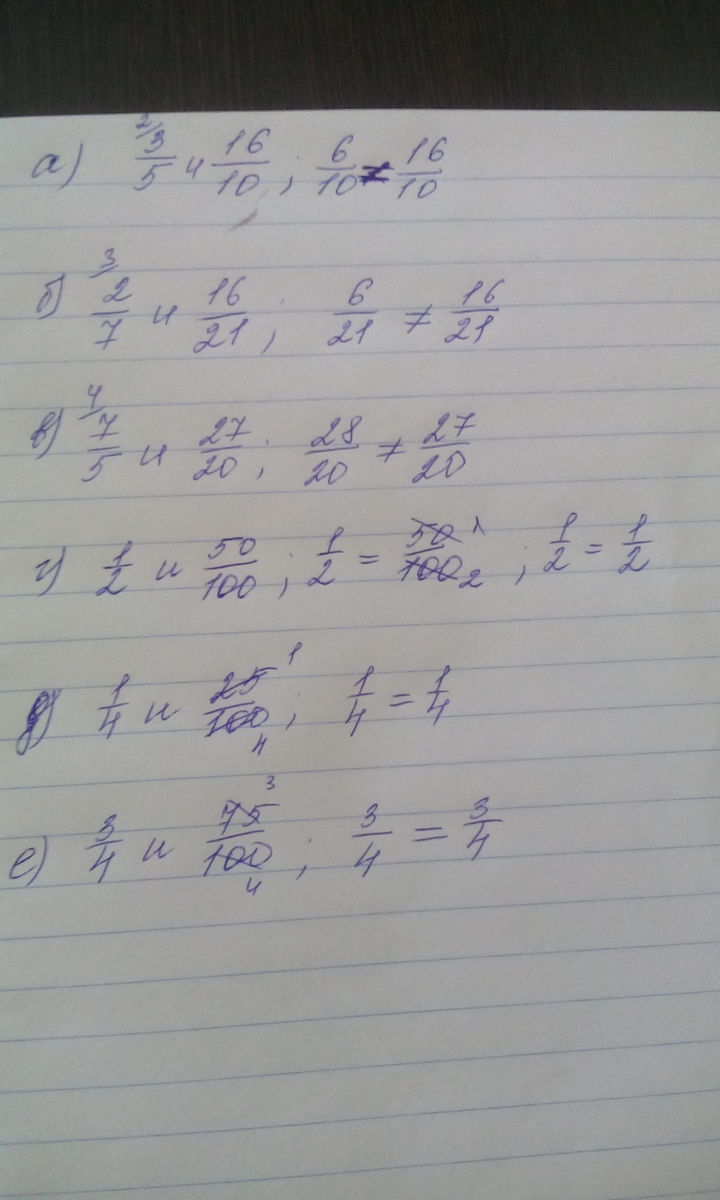 а) 2/ 3/5 и 16/10 ; 6/10 ≠ 16/10
б) 3/ 2/7 и 16/21 ; 6/21 ≠ 16/21
в) 4/ 7/5 и 27/20 ; 28/20 ≠ 27/20
г) 1/2 и 50/100 ; 1/2 = 50/100 1 2 ; 1/2 = 1/2
д) 1/4 и 25/100 1 4 ; 1/4 = 1/4
е) 3/4 и 75/100 3 4 ; 3/4 = 3/4